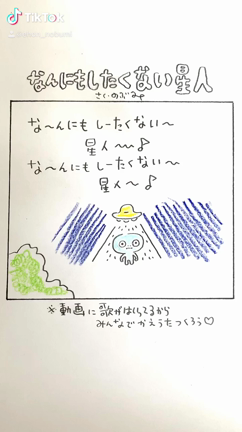 TikTok
なんにもしたくない星人
さく・のぶみ
な〜んにも しーたくない〜
星人〜♪
な〜んにも しーたくない〜
星人〜♪
※動画に歌がはいってるから
みんなでかえうたつくろう♡